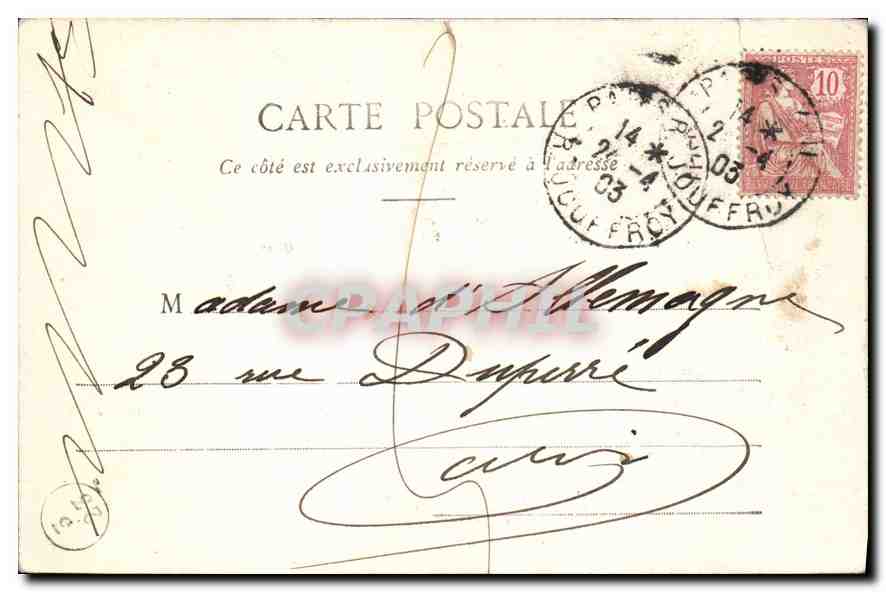 POSTES
10
CARTE POSTALE
Ce côté est exclusivement réservé à l'adresse
14 *
2 -4
03
R. JOUFFROY
14 *
2 -4
03
R. JOUFFROY
CPAPHIL
Madame d'Allemagne
23 rue Duperré
Paris